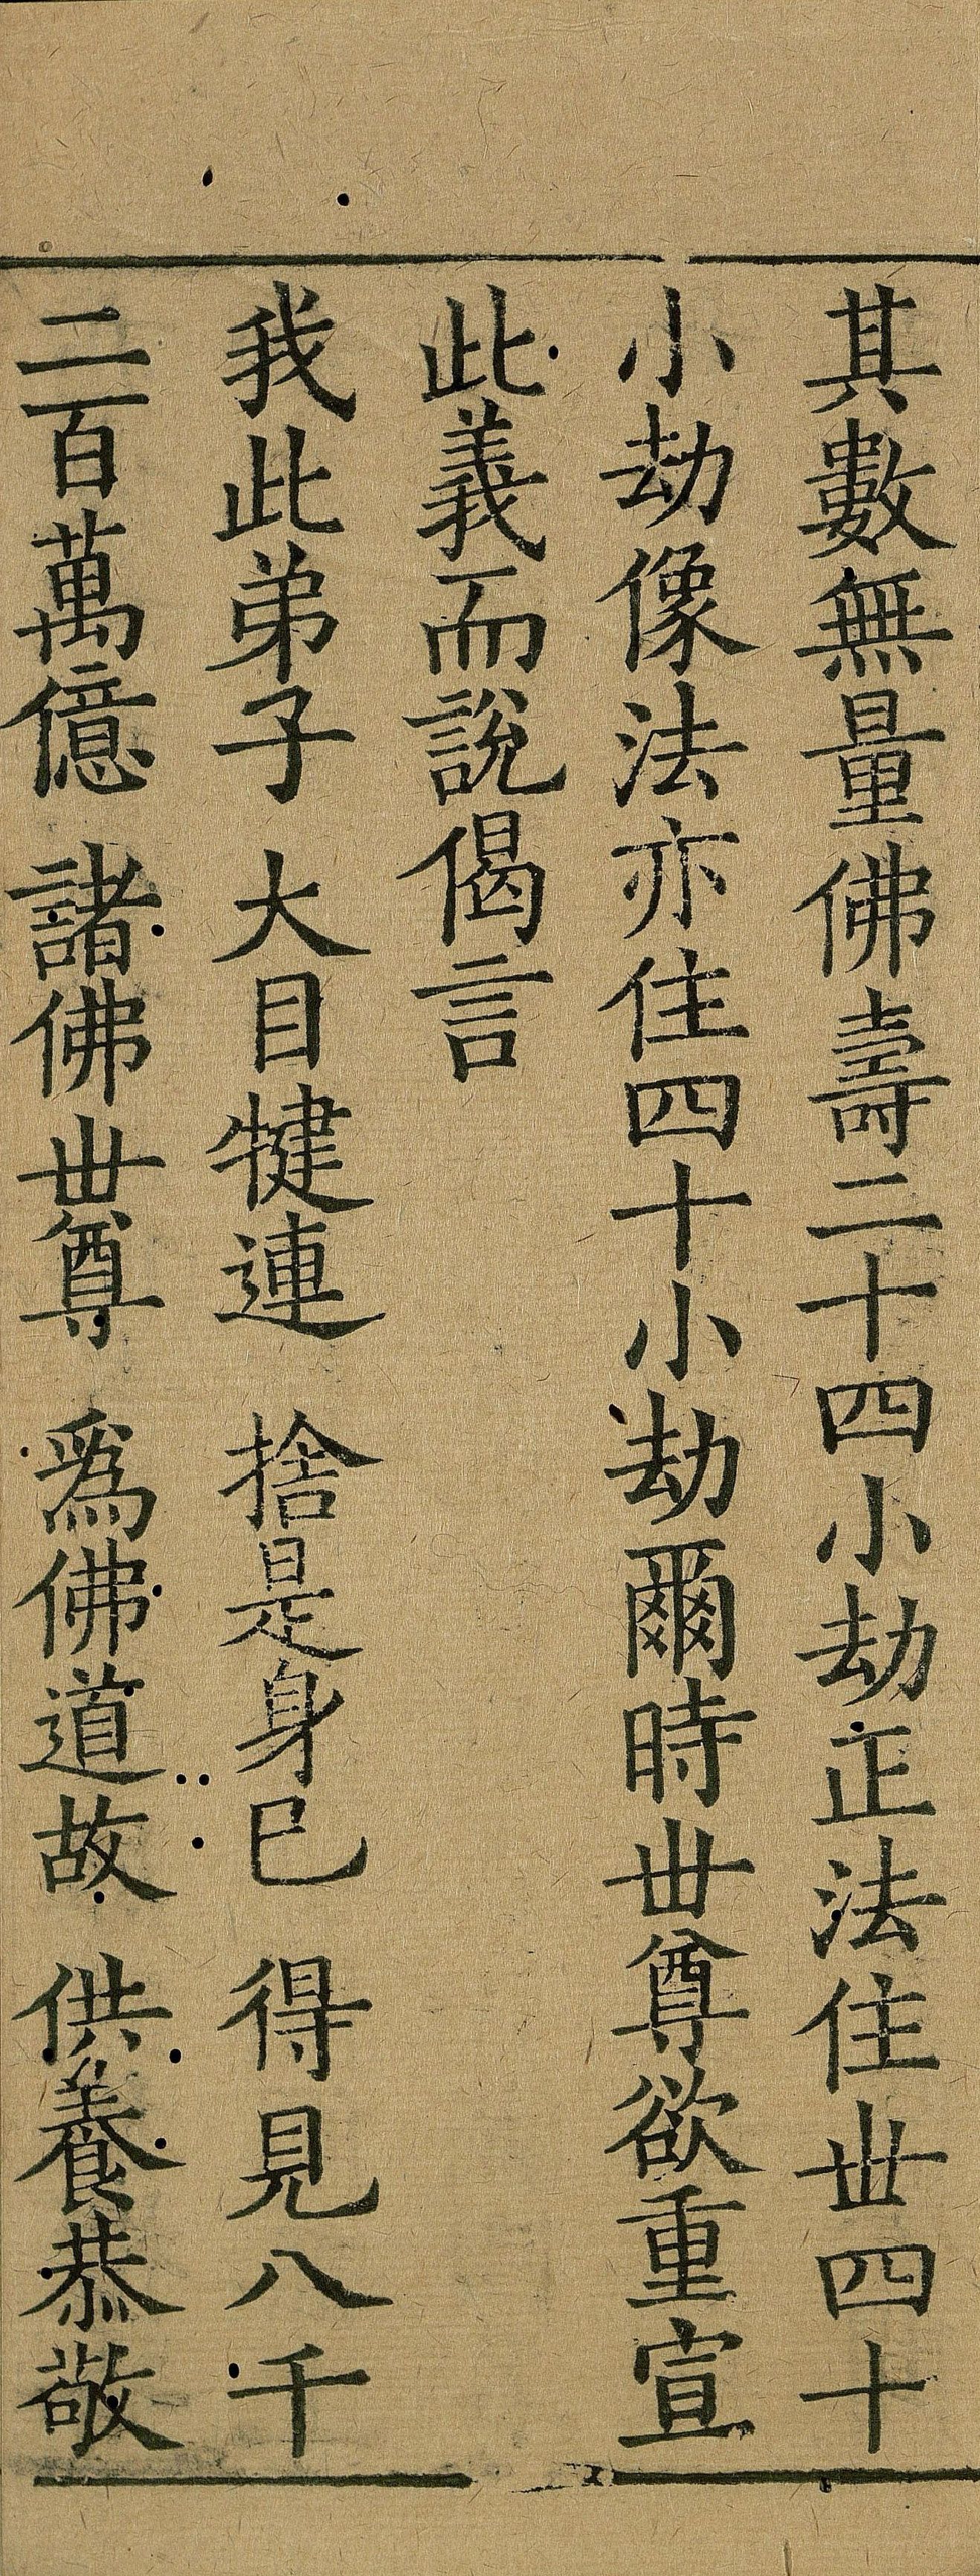 其數無量佛壽二十四小劫正法住丗四十
小劫像法亦住四十小劫爾時丗尊欲重宣
此義而說偈言
我此弟子　大目犍連　捨是身已　得見八千
二百萬億　諸佛丗尊　爲佛道故　供養恭敬